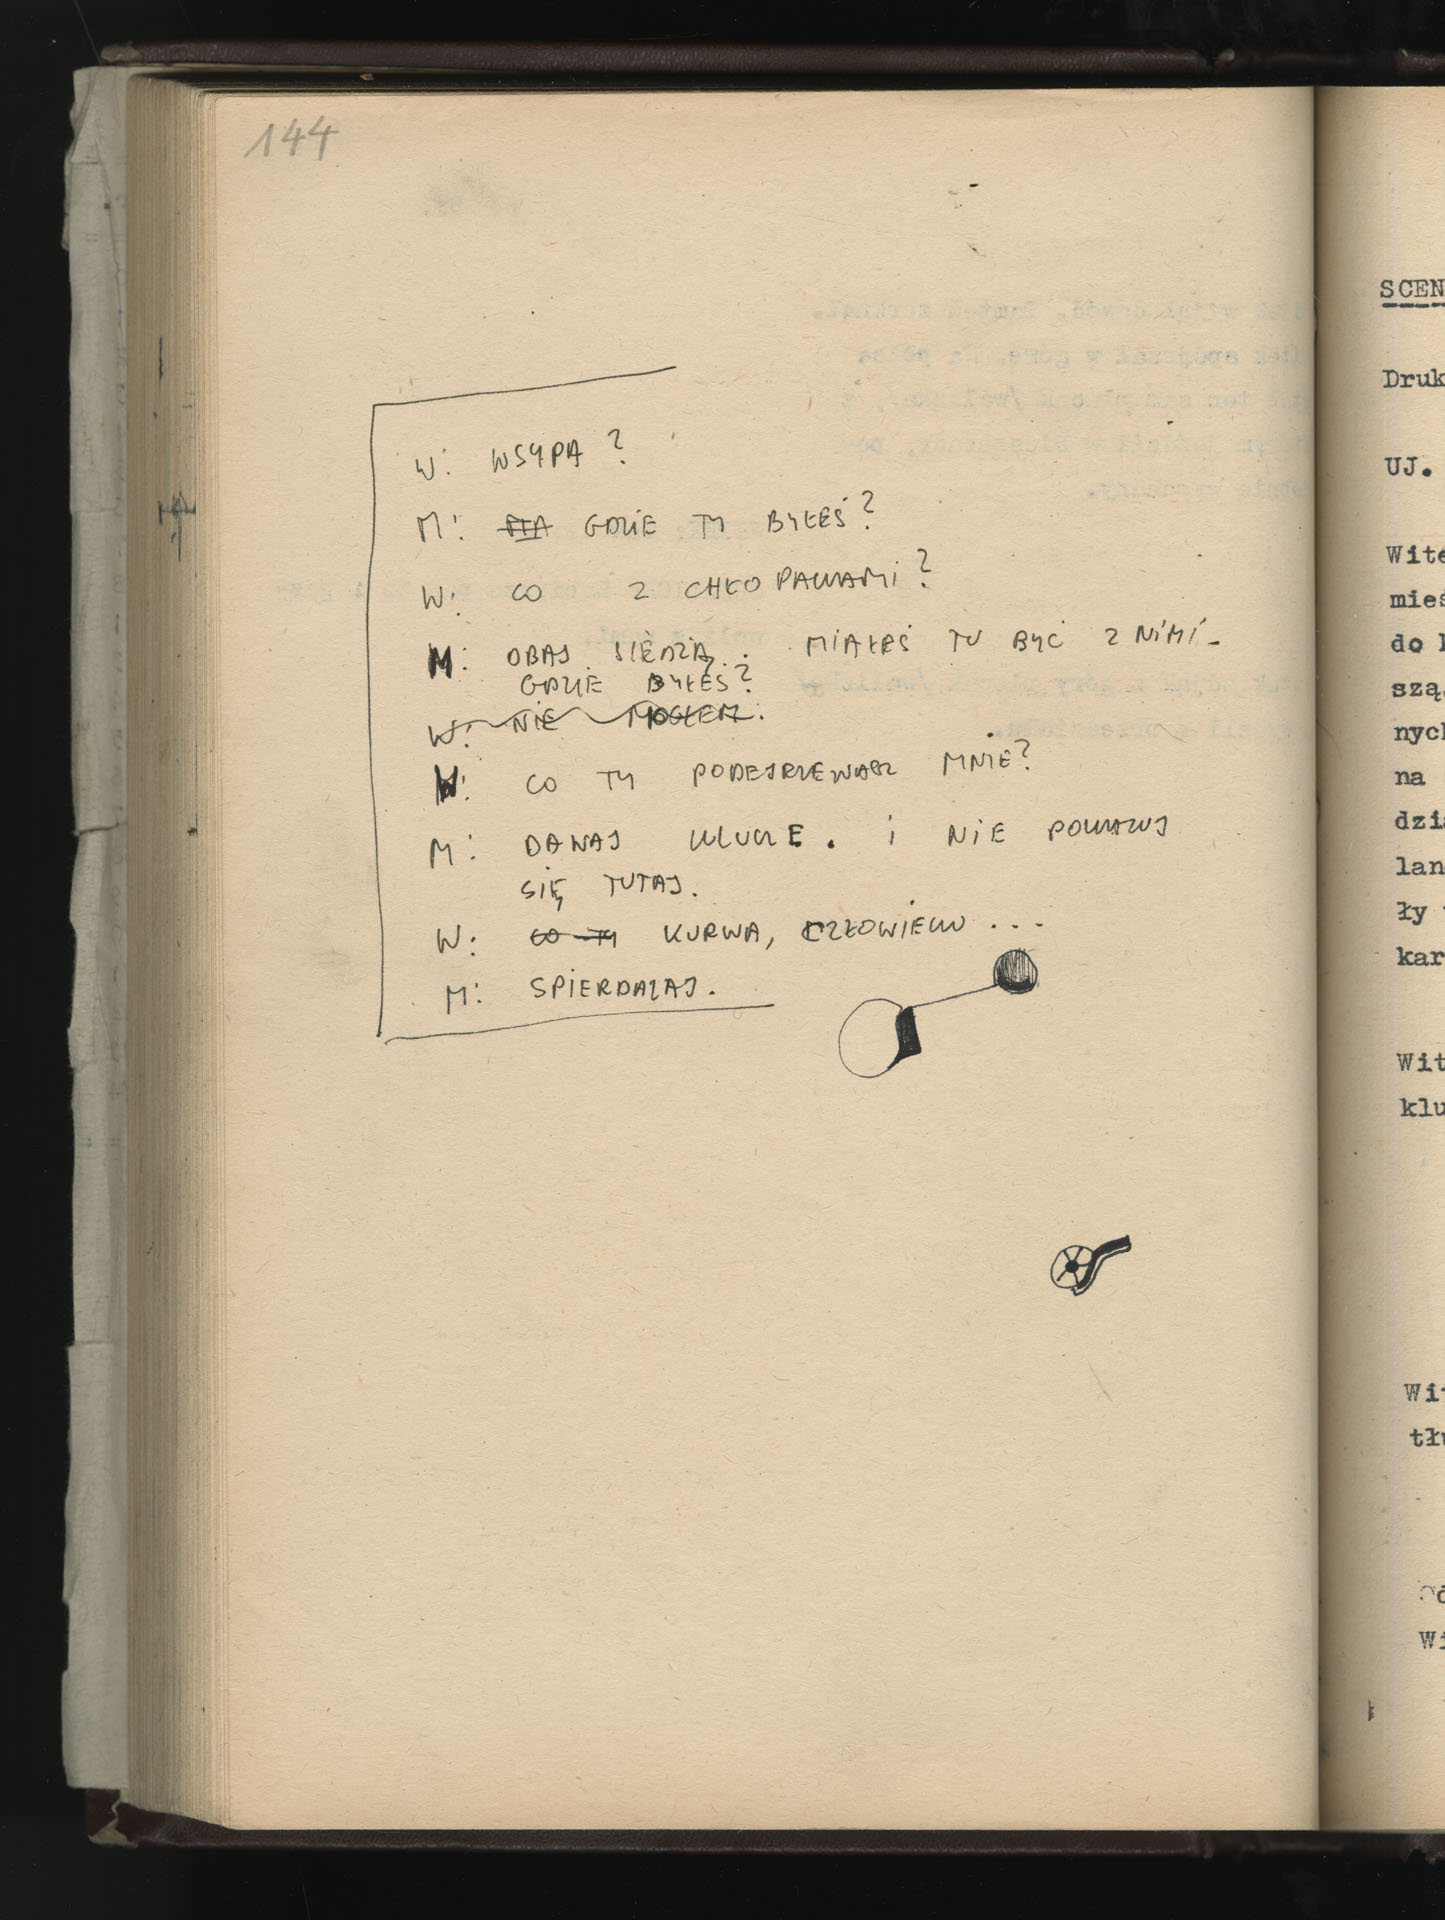 144
W: WSYPA?
M: GDZIE TY BYŁEŚ?
W: CO Z CHŁOPAKAMI?
M: OBAJ SIEDZĄ. MIAŁEŚ TU BYĆ Z NIMI -
GDZIE BYŁEŚ?
W: NIE MOGŁEM.
W: CO TY PODEJRZEWASZ MNIE?
M: DAWAJ KLUCZE. i NIE POKAZUJ
SIĘ TUTAJ.
W: CO TY KURWA, CZŁOWIEKU ...
M: SPIERDALAJ.
SCEN
Druk
UJ.
Wite
mieś
do
szą
nych
na
dzia
lan
ły
kar
Wit
klu
Wit
tłu
Wi